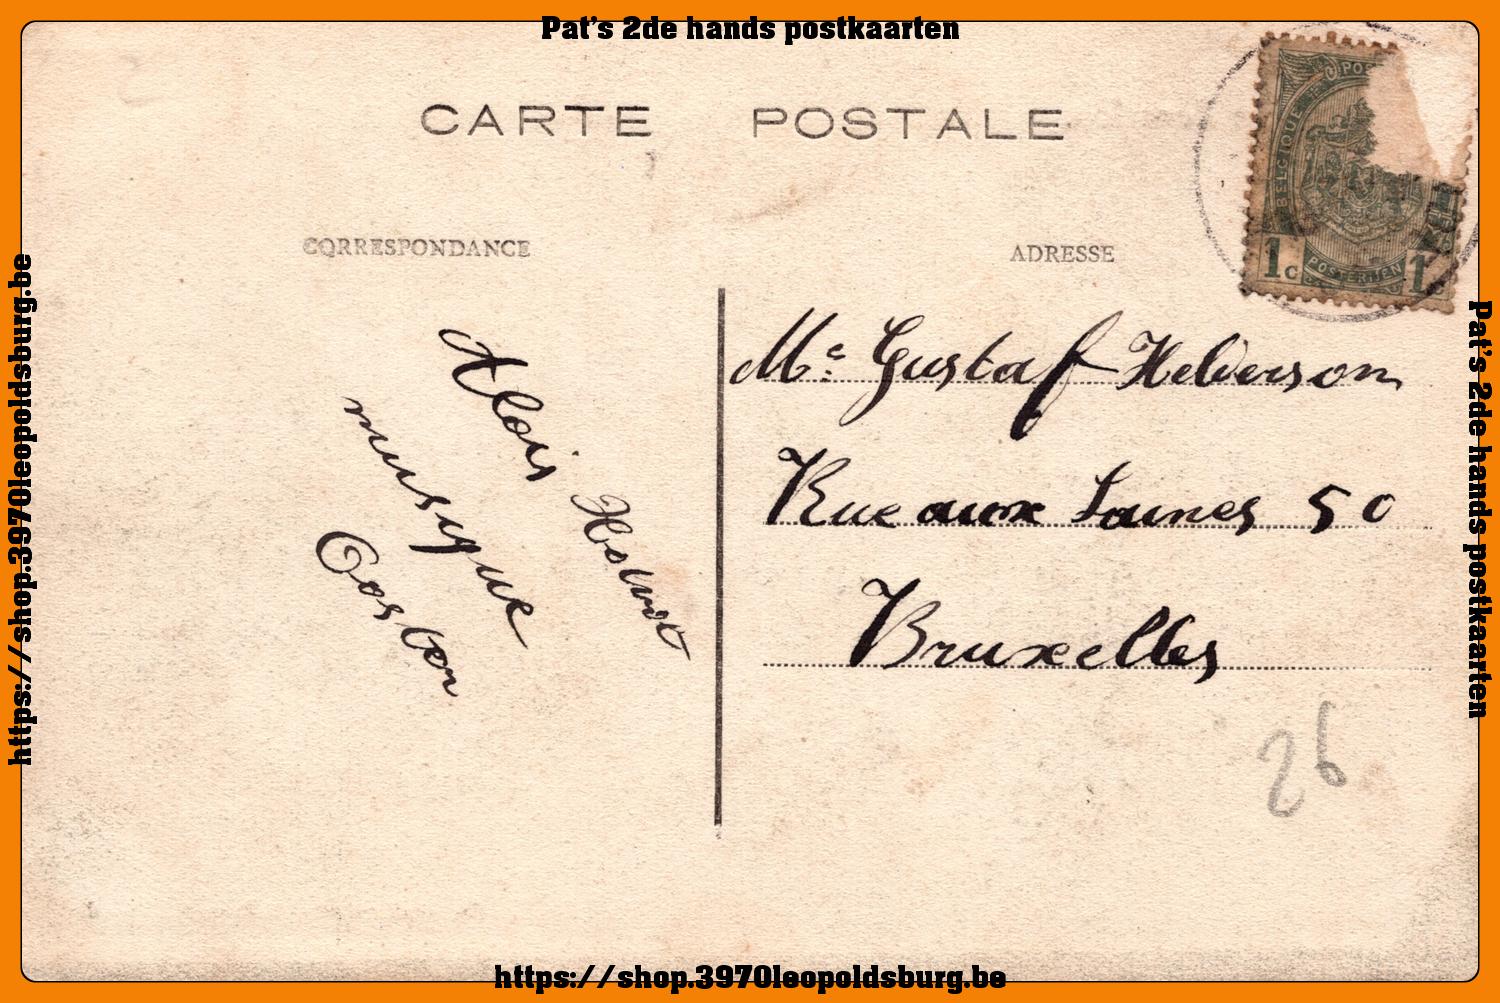 Pat's 2de hands postkaarten
CARTE POSTALE
BELGIQUE
1c POSTERIJEN 1
CORRESPONDANCE
ADRESSE
Alois
musique
Me Gustaf
Rue aux Laines 50
Bruxelles
26
https://shop.3970leopoldsburg.be
Pat's 2de hands postkaarten
https://shop.3970leopoldsburg.be